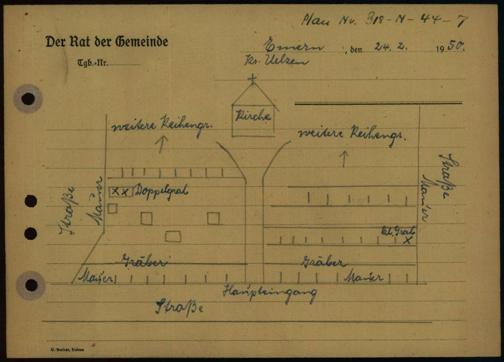 Plan Nr. 318-N-44-7
Der Rat der Gemeinde
Emern, den 24.2. 1950.
Kr. Uelzen
Tgb.-Nr.
Kirche
weitere Reihengr.
weitere Reihengr.
Straße
Mauer
XX Doppelgrab
Straße
Mauer
Grab
X
Gräber
Gräber
Mauer
Mauer
Haupteingang
Straße